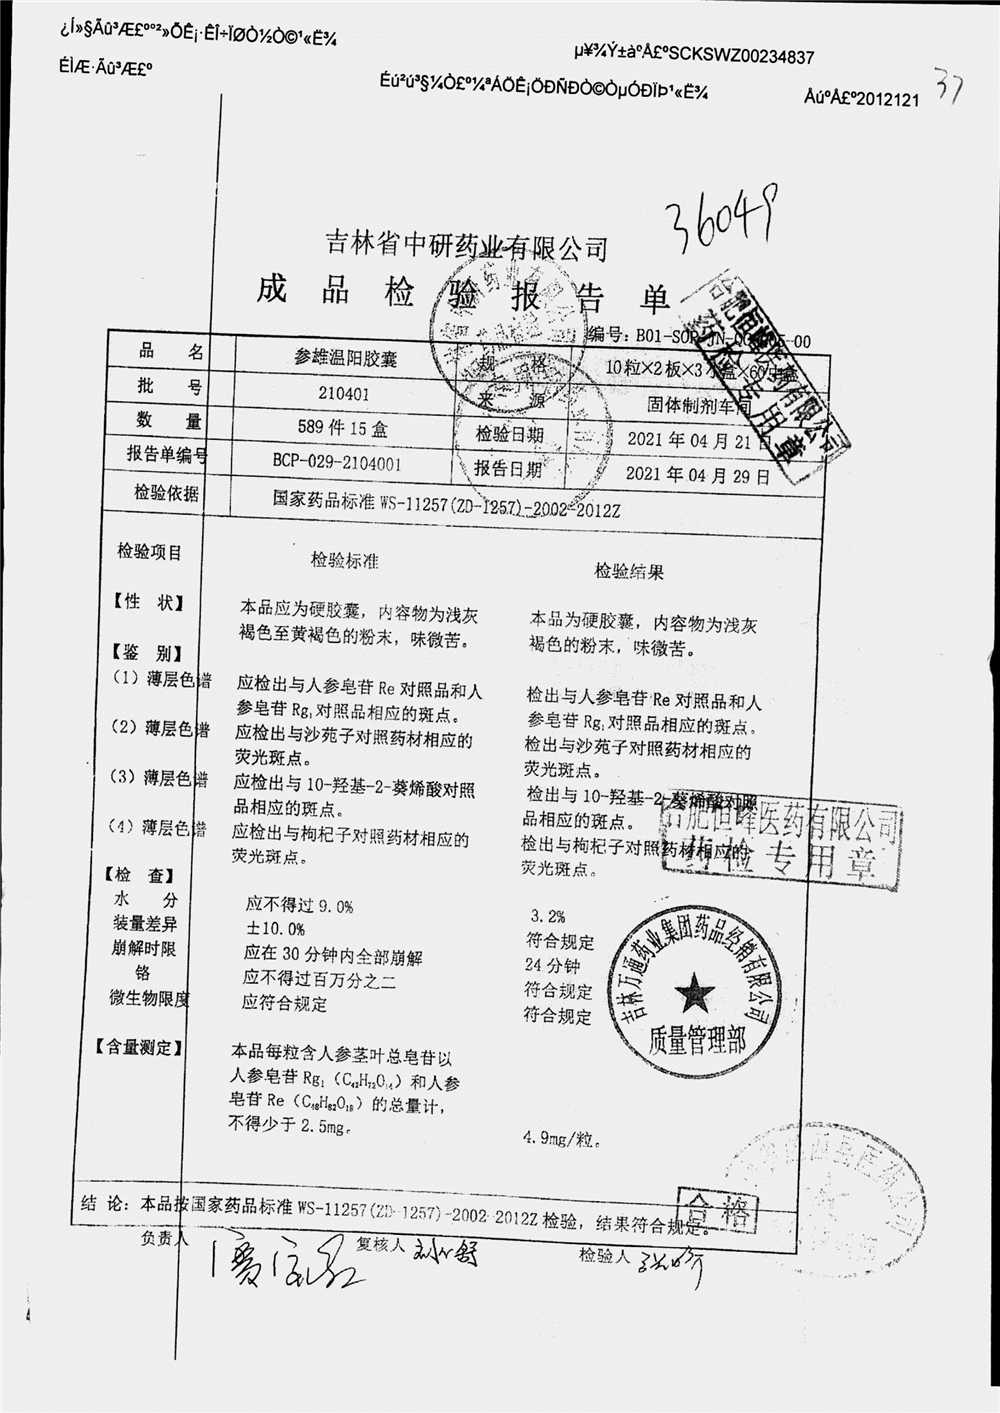 ¿Í»§Ãû³Æ£ºº²»ÕÊ¡·ÊÎ÷ÏØÒ½Ò©¹«Ë¾
µ¥¾Ý±àºÅ£ºSCKSWZ00234837
ÉÌÆ·Ãû³Æ£º
Éú²ú³§¼Ò£º¼ªÁÖÊ¡ÖÐÑÐÒ©ÒµÓÐÏÞ¹«Ë¾
ÅúºÅ£º2012121
37
36049
吉林省中研药业有限公司
成品检验报告单
编号:B01-SOP
品 名 参雄温阳胶囊 规 格 10粒×2板×3小盒×60中盒
批 号 210401 来 源 固体制剂车间
数 量 589件15盒 检验日期 2021年04月21日
报告单编号 BCP-029-2104001 报告日期 2021年04月29日
检验依据 国家药品标准WS-11257(ZD-1257)-2002-2012Z
检验项目 检验标准 检验结果
【性 状】 本品应为硬胶囊，内容物为浅灰 本品为硬胶囊，内容物为浅灰
褐色至黄褐色的粉末，味微苦。 褐色的粉末，味微苦。
【鉴 别】
(1)薄层色谱 应检出与人参皂苷Re对照品和人 检出与人参皂苷Re对照品和人
参皂苷Rg₁对照品相应的斑点。 参皂苷Rg₁对照品相应的斑点。
(2)薄层色谱 应检出与沙苑子对照药材相应的 检出与沙苑子对照药材相应的
荧光斑点。 荧光斑点。
(3)薄层色谱 应检出与10-羟基-2-葵烯酸对照 检出与10-羟基-2-葵烯酸对照
品相应的斑点。 品相应的斑点。
(4)薄层色谱 应检出与枸杞子对照药材相应的 检出与枸杞子对照药材相应的
荧光斑点。 荧光斑点。
【检 查】
水 分 应不得过9.0% 3.2%
装量差异 ±10.0% 符合规定
崩解时限 应在30分钟内全部崩解 24分钟
铬 应不得过百万分之二 符合规定
微生物限度 应符合规定 符合规定
【含量测定】 本品每粒含人参茎叶总皂苷以
人参皂苷Rg₁（C₄₂H₇₂O₁₄）和人参
皂苷Re（C₄₈H₈₂O₁₈）的总量计，
不得少于2.5mg。 4.9mg/粒。
结 论：本品按国家药品标准WS-11257(ZD-1257)-2002-2012Z检验，结果符合规定。
合格
负责人 复核人 检验人
合肥恒峰医药有限公司
药检专用章
合肥恒峰医药有限公司
药检专用章
吉林万通药业集团药品经销有限公司
质量管理部